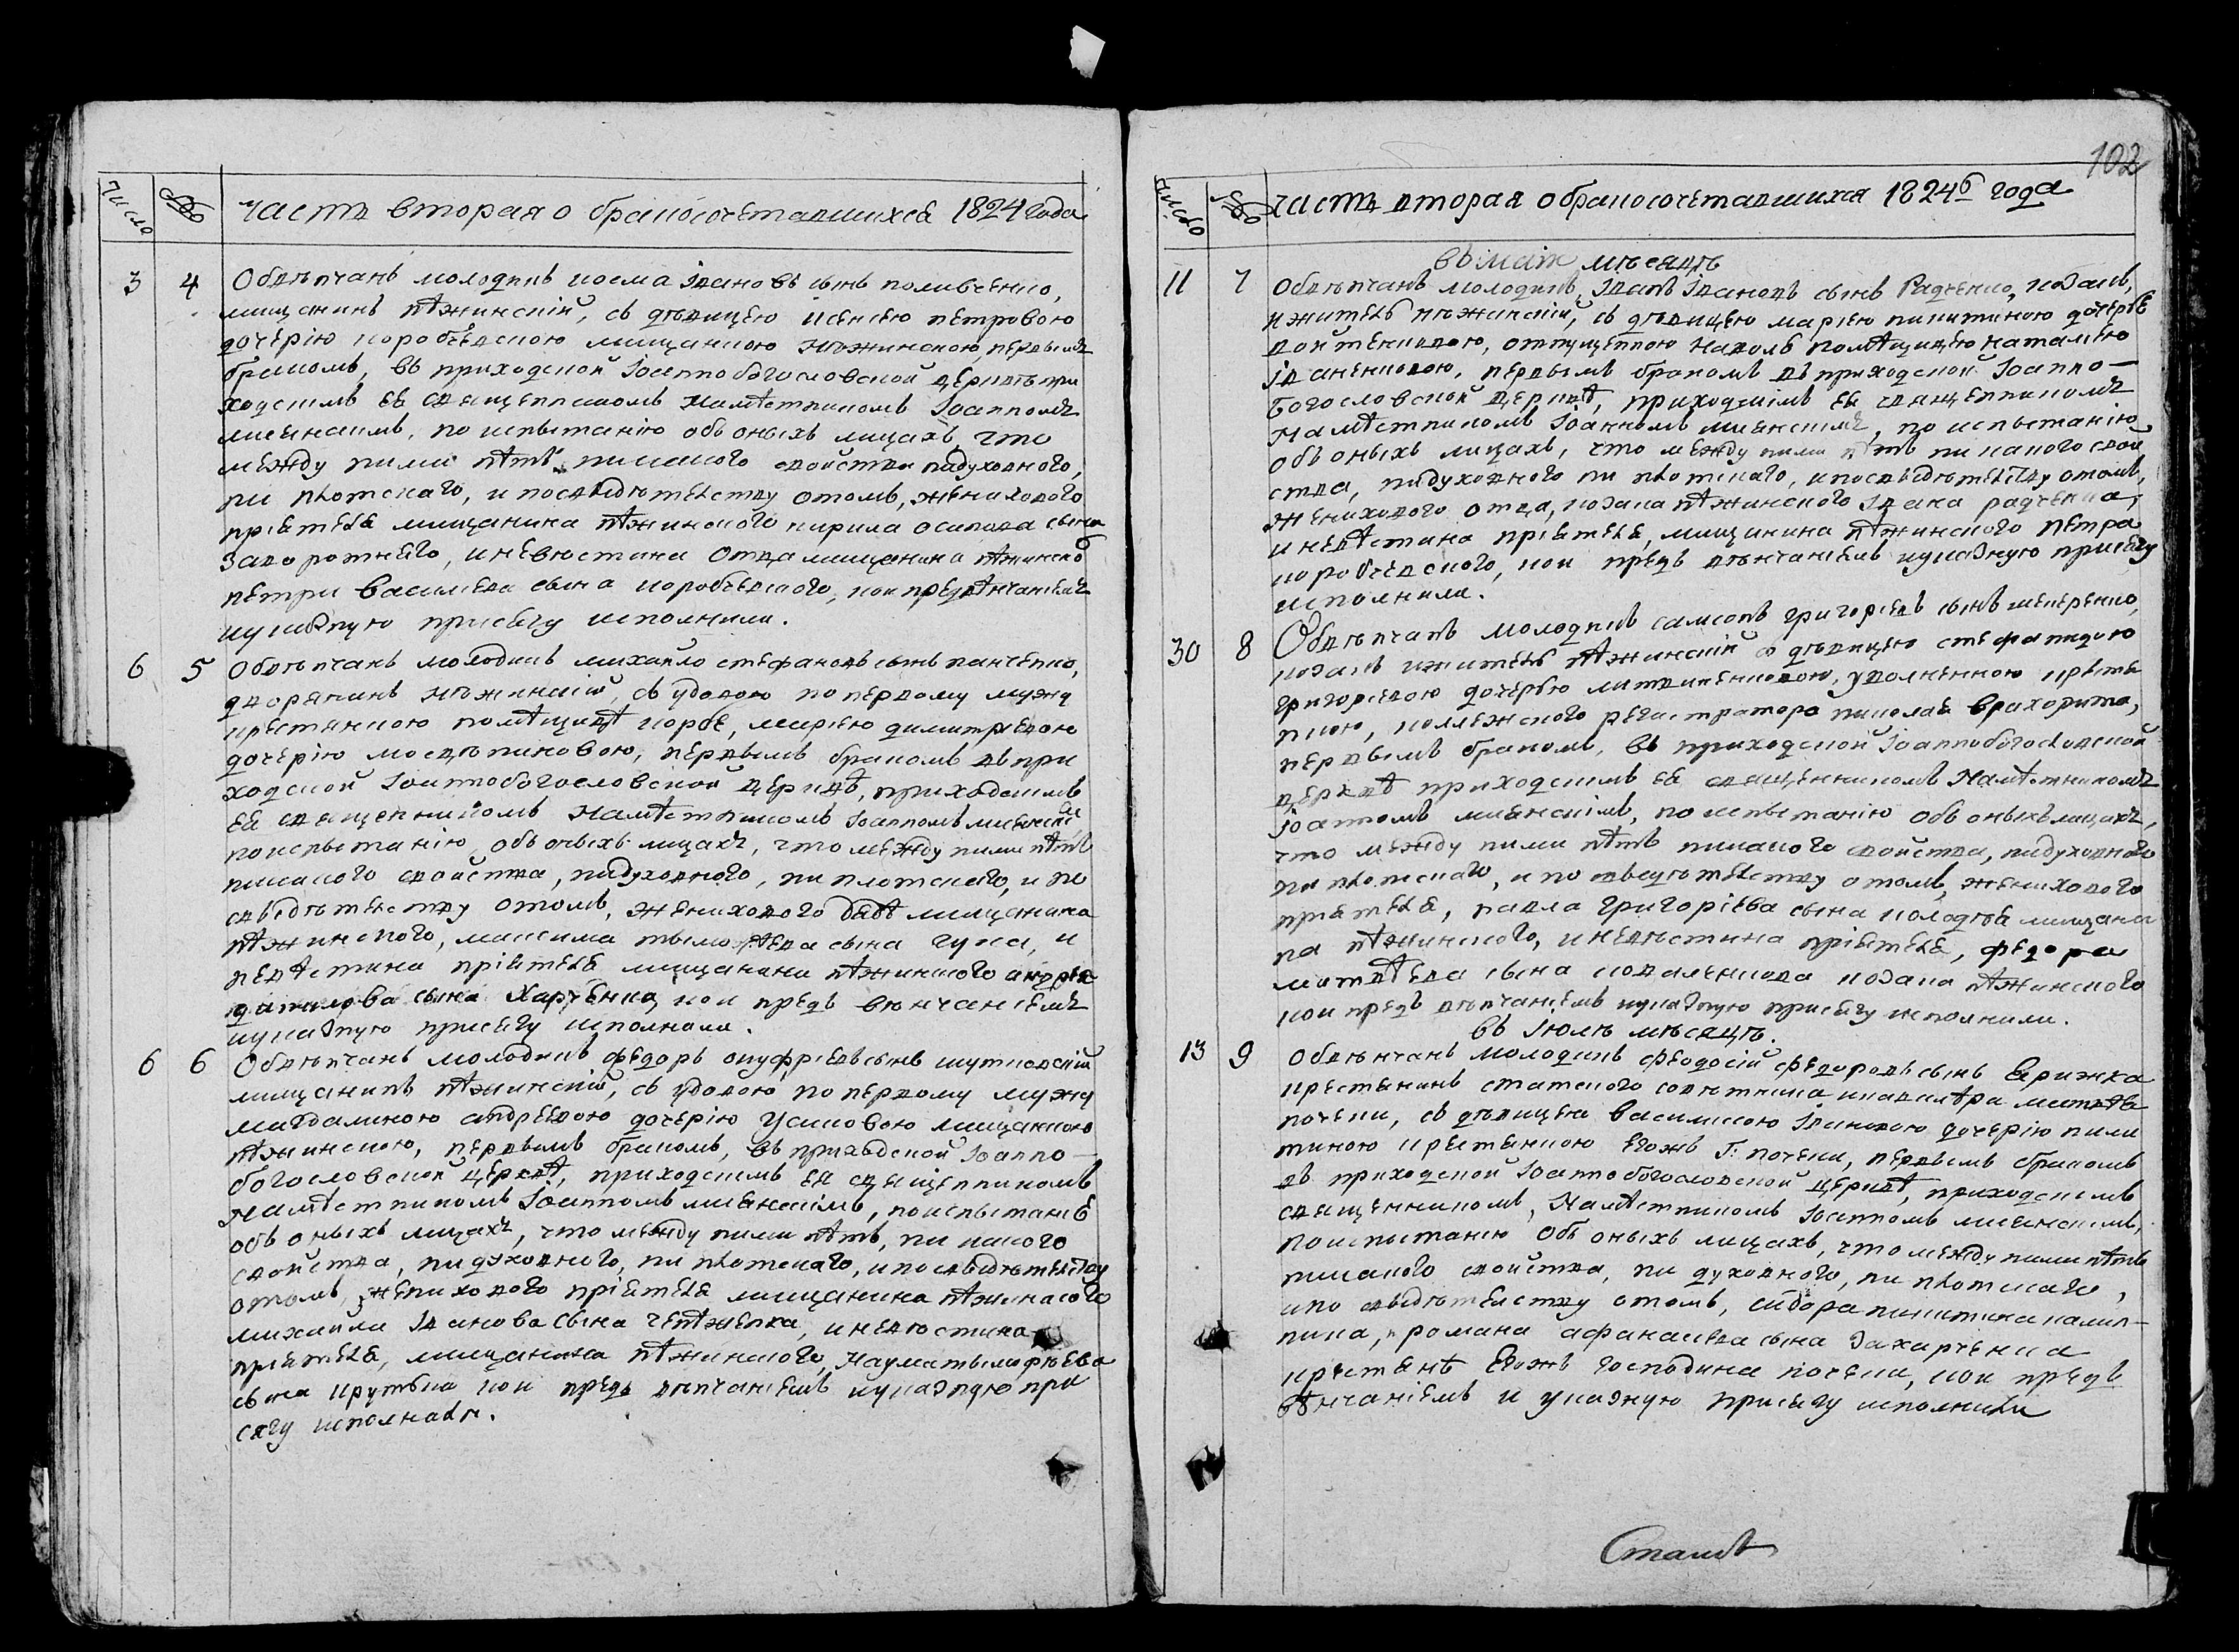 Число
часть вторая о бракосочетавшихся 1824 года
3 4 Обвѣнчанъ молодикъ козма Івановъ сынъ поливченко,
мищанинъ нѣжинскій, съ дѣвицею ксенею петровою
дочерію коробчевскою мищанкою нѣжинскою, первымъ
бракомъ, въ приходской Іоаннобогословской церквѣ при
ходскимъ ея священникомъ намѣстникомъ Іоанномъ
миенскимъ, по испытанію объ оныхъ лицахъ, что
между ними нѣтъ никакого свойства нидуховного,
ни плотскаго, и посвидѣтелству отомъ, женихового
пріятеля мищанина нѣжинского кирила осипова сына
Заворотнего, и невѣстина Отца мищанина нѣжинско
петра Василева сына коробчевского, кои предвѣнчаніемъ
куказную присягу исполнили.
6 5 Обвѣнчанъ молодикъ михайло стефановъ сынъ панченко,
дворянинъ нѣжинскій, съ удовою по первому мужу
крестянкою помѣщицѣ корбе, маріею димитріевою
дочерію мосвѣниковою, первымъ бракомъ въ при
ходской Іоаннобогословской церквѣ, приходскимъ
ея священникомъ намѣстникомъ Іоанномъ миенски
поиспытанію, объ оныхъ лицахъ, что между ними нѣтъ
никакого свойства, нидуховного, ни плотскаго, и по
свидѣтелству отомъ, женихового мищанина
нѣжинского, максима тимофѣева сына гука, и
невѣстина пріятеля мищанина нѣжинского андрея
данилова сына Харченка, кои предъ вѣнчаніемъ
куказную присягу исполнили.
6 6 Обвѣнчанъ молодикъ федоръ онуфріевъ сынъ шутковскій
мищанинъ нѣжинскій, съ удовою, по первому мужу
магдалиною андреевою дочерію Усиковою мищанкою
нѣжинскою, первымъ бракомъ, въ приходской Іоанно-
богословской церквѣ, приходскимъ ея священникомъ
намѣстникомъ Іоанномъ миенскімъ, поиспытанію
объ оныхъ лицахъ, что между ними нѣтъ, ни какого
свойства, ни духовного, ни плотскаго, и посвидѣтелству
отомъ, женихового пріятеля мищанина нѣжинского
михаила Іванова Сына, и невѣстина
пріятеля, мищанина нѣжинского, наума тимофѣева
сына крутька кои предъ вѣнчаніемъ куказную при
сягу исполнили.
102
число
часть вторая о бракосочетавшихся 1824б года
въ маіи мѣсяцѣ
11 7 Обвѣнчанъ молодикъ, Іванъ Івановъ сынъ Радченко, козакъ,
ижитель нѣжинскій, съ дѣвицею маріею никитиною дочерю
войтенковою, отпущенною наволю помѣщицею наталіею
Іваненковою, первымъ бракомъ въ приходской Іоанно-
Богословской церквѣ, приходскімъ ея священникомъ
намѣстникомъ Іоанномъ миенскімъ, по испытанію
объ оныхъ лицахъ, что между ними нѣтъ ни какого свой
ства, нидуховного ни плотскаго, и посвидѣтелству отомъ,
женихового отца, козака нѣжинского Івана радченка,
и невѣстина пріятеля, мищанина нѣжинского петра
коробчевского, кои предъ вѣнчаніемъ куказную присягу
исполнили.
30 8 Обвѣнчанъ молодикъ самсонъ григоріевъ сынъ
козакъ ижитель нѣжинскій съ дѣвицею стефанидою
григоріевою дочерью литвиненковою, уволненною крестя
нкою, колежского регистратора николая Врахорита,
первымъ бракомъ, въ приходской Іоаннобогословской
церквѣ приходскимъ ея священникомъ намѣстникомъ
Іоанномъ миенскімъ, по испытанію объ оныхълицахъ,
что между ними нѣтъ никакого свойства, нидуховного
ни плотскаго, и по свидѣтелству отомъ, женихового
пріятеля, павла григоріева сына колодѣя мищани
на нѣжинского, и невѣстина пріятеля, федора
матвѣева сына коваленкова козака нѣжинского
кои предъ вѣнчаніемъ куказную присягу исполнили.
въ Іюлѣ мѣсяцѣ.
13 9 Обвѣнчанъ молодикъ феодосій федоровъ сынъ Ярижка
крестянинъ статского совѣтника икавалѣра матвѣя
почеки, съ дѣвицею василисою Івановою дочерію
крестянкою Егожъ Г: почеки, первымъ бракомъ
въ приходской Іоаннобогословской церквѣ, приходскимъ
священникомъ, намѣстникомъ Іоанномъ миенскимъ,
поиспытанію объ оныхъ лицахъ, что между ними нѣтъ
никакого свойства, ни духовного, ни плотскаго,
ипо свидѣтелству отомъ, сидора никитина калин-
ника, романа афанасіева сына захарченка
крестянъ Егожъ господина почеки, кои предъ
вѣнчаніемъ и указную присягу исполнили